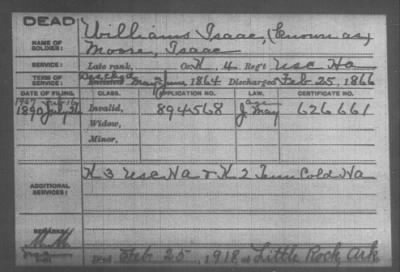 DEAD
NAME OF SOLDIER:
Williams Isaac, (known as)
Moore, Isaac
SERVICE:
Late rank, Co. K, 4 Reg't USC Ha
TERM OF SERVICE:
Enlisted June, 1864 Discharged Feb 25, 1866
DATE OF FILING.
CLASS.
APPLICATION NO.
LAW.
CERTIFICATE NO.
1890 July
Invalid,
894568
626661
Widow,
Minor,
ADDITIONAL SERVICES:
K 3 USC Ha & K 2 Tenn Cold Ha
REMARKS:
Died Feb 25, 1918 at Little Rock Ark